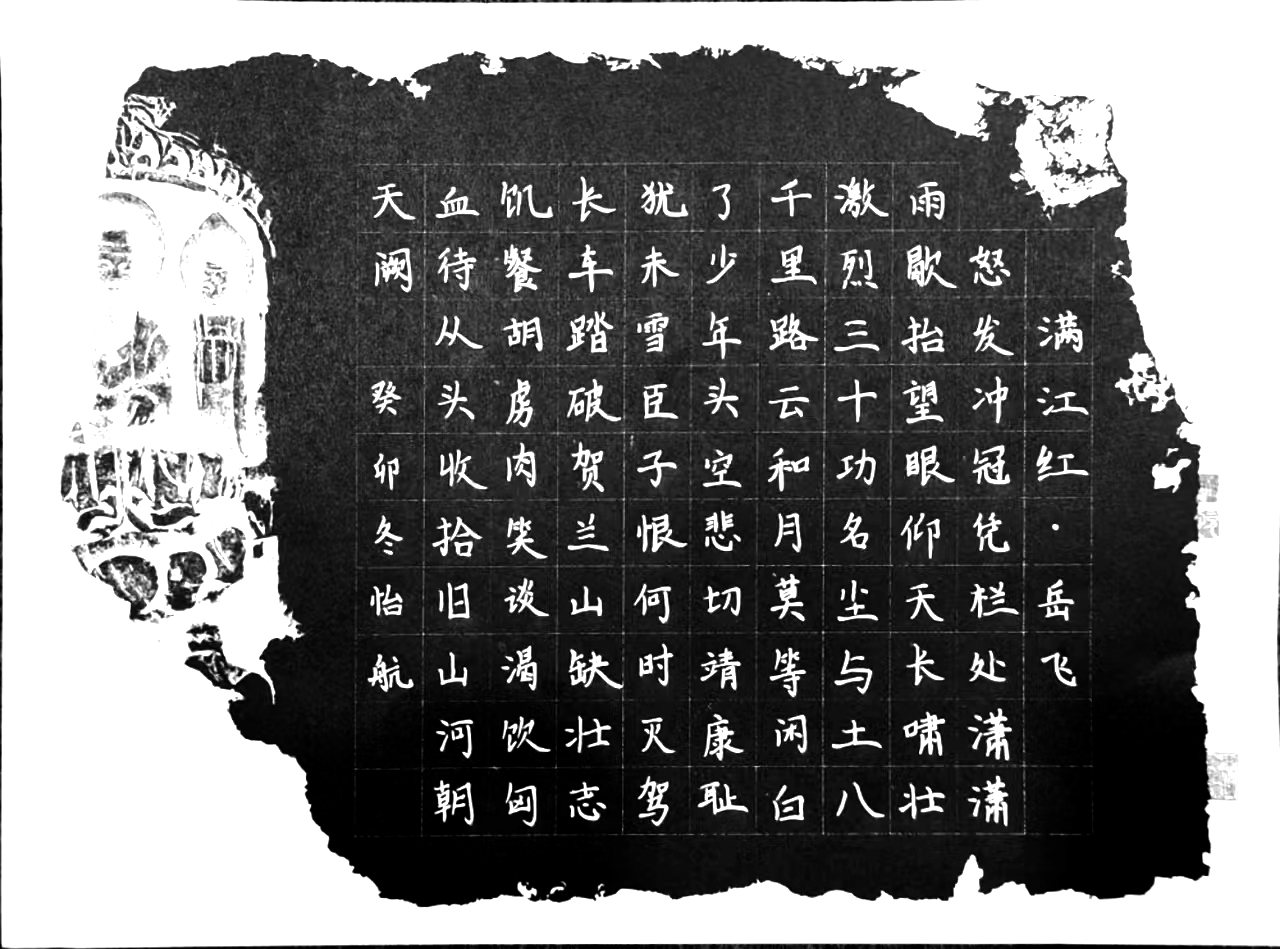 满江红·岳飞
怒发冲冠凭栏处潇潇
雨歇抬望眼仰天长啸壮
激烈三十功名尘与土八
千里路云和月莫等闲白
了少年头空悲切靖康耻
犹未雪臣子恨何时灭驾
长车踏破贺兰山缺壮志
饥餐胡虏肉笑谈渴饮匈
血待从头收拾旧山河朝
天阙
癸卯冬怡航